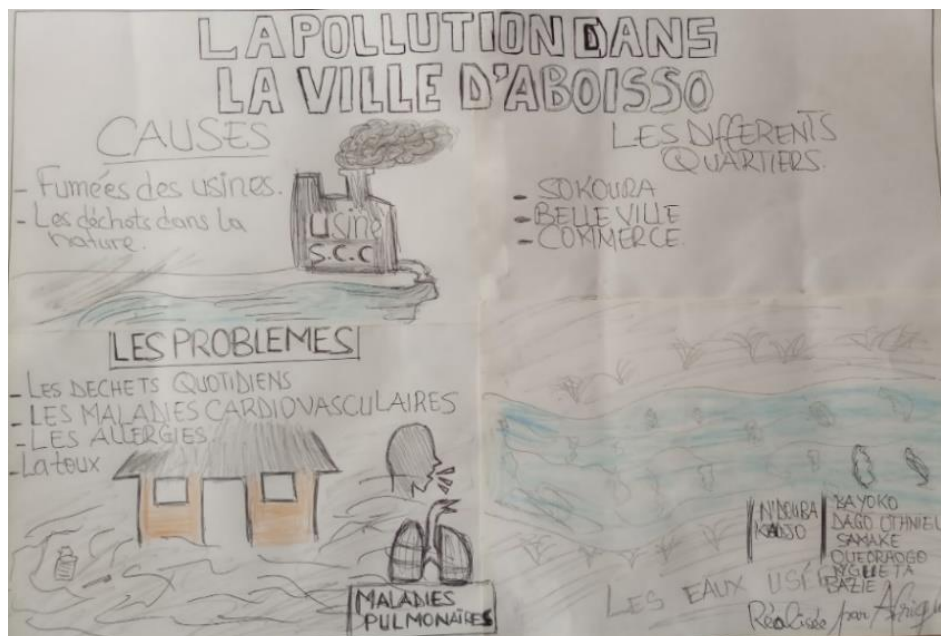 LA POLLUTION DANS
LA VILLE D'ABOISSO
CAUSES
- Fumées des usines.
- Les déchots dans la
nature.
usine
S.C.C
LES DIFFERENTS
QUARTIERS.
- SOKOURA
- BELLE VILLE
- COMMERCE.
LES PROBLEMES
- LES DECHETS QUOTIDIENS
- LES MALADIES CARDIOVASCULAIRES
- LES ALLERGIES
- La toux
MALADIES
PULMONAIRES
N'DOUBA
KADJO
KAYOKO
DAGO OTHNIEL
SAMAKE
OUEDRAOGO
N'GUETA
BAZIE
LES EAUX USÉ
Réalisée par